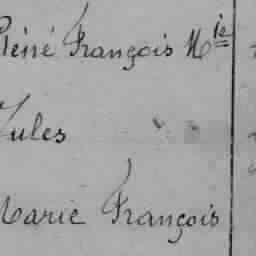 Pléiré François M^ie
Jules
Marie François